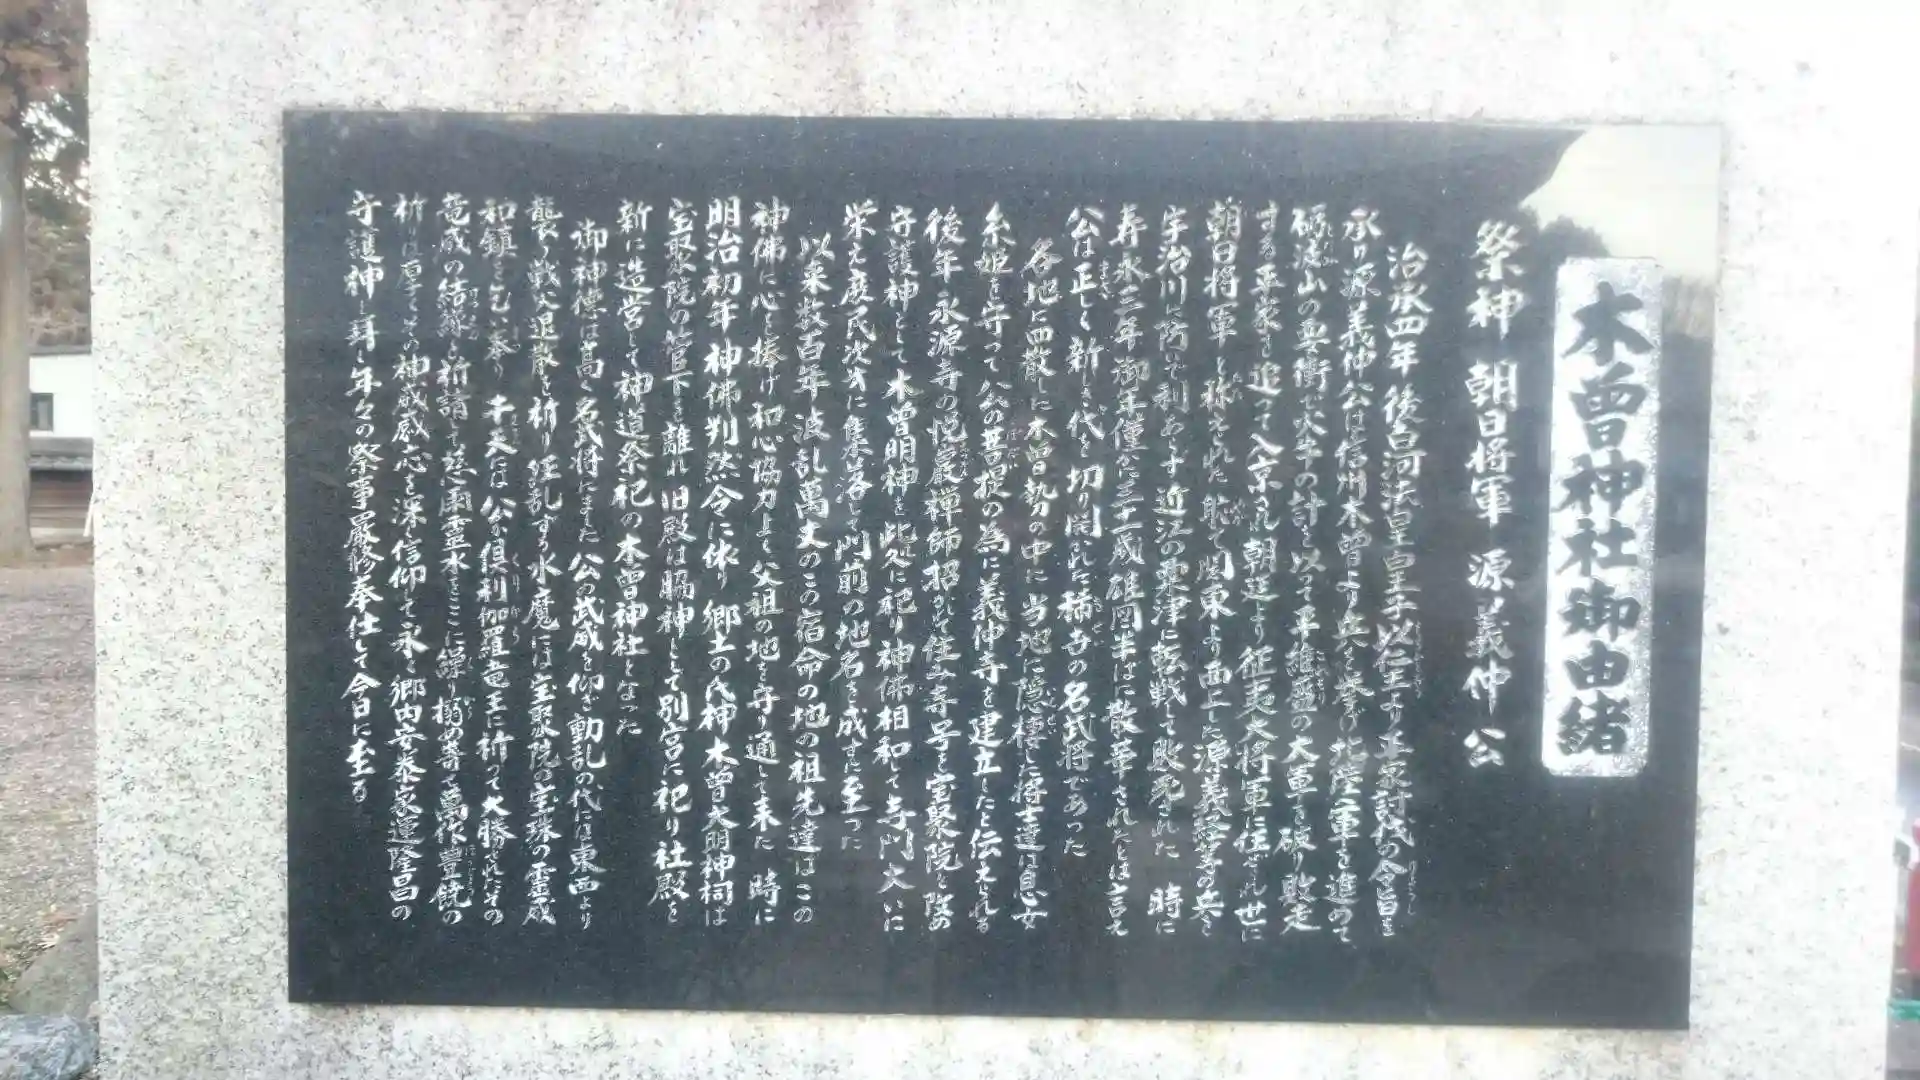 木曽神社御由緒
祭神 朝日将軍 源義仲公
治承四年 後白河法皇皇子以仁王より平家討伐の令旨を
承り源義仲公は信州木曽より兵を挙げ北陸軍を進めて
砺波山の要衝で火牛の計を以って平維盛の大軍を破り敗走
する平家を追って入京され朝廷より征夷大将軍に任ぜられ世に
朝日将軍と称えられた 恥て関東より西上した源義経等の兵を
宇治川に防いで利あらず近江の粟津に転戦して敗死された 時に
寿永三年御年僅に三十一歳雄図半ばに散華されたとは言え
公は正しく新しき代を切り開かれた 稀な名武将であった
各地に四散した木曽勢の中に当地に隠棲した将士達は息女
糸姫を守って公の菩提の為に義仲寺を建立したと伝えられる
後年永源寺の悦巌禅師招かれて住み寺号を宝聚院と改め
守護神として木曽明神を此処に祀り神佛相和して寺門大いに
栄え庶民次第に集落して門前の地名を成すに至った
以来数百年波乱萬丈のこの宿命の地の祖先達はこの
神佛に心を捧げ和心協力よく父祖の地を守り通して来た 時に
明治初年神佛判然令に依り郷土の氏神木曽大明神祠は
宝聚院の管下を離れ旧殿は脇神として別宮に祀り社殿を
新に造営して神道祭祀の木曽神社となった
御神徳は高く名武将にました公の武威を仰ぎ動乱の代には東西より
襲う戦火退散を祈り狂乱する水魔には宝聚院の宝珠の霊威
和鎮を乞い奉り 干天には公が倶利伽羅竜王に祈って大勝されたその
竜威の結縁を祈請して慈雨霊水をここに繰り 萬作豊饒の
祈りは厚くその神威感応を深く信仰して永く郷内安泰家運隆昌の
守護神と拝し年々の祭事厳修奉仕して今日に至る